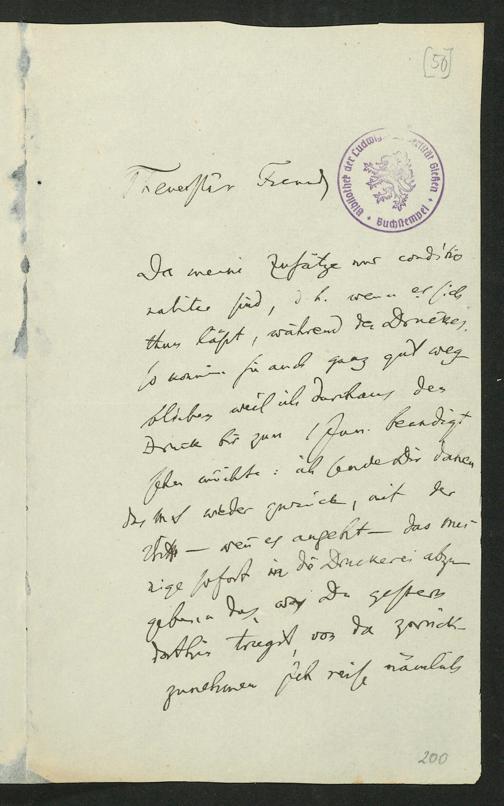 [50]
Bibliothek der Ludwigs Universität Gießen
Buchstempel
Theuerster Freund
Da meine Zusätze nur conditio
naliter sind, d. h. wenn es sich
thun läßt, während des Druckes,
so können sie auch ganz gut weg
bleiben weil ich durchaus den
Druck bis zum 1 Jan. beendigt
sehen möchte: ich sende Dir
das Ms wieder zurück, mit der
Bitte — wenn es angeht — das mei
nige sofort in die Druckerei abzu
geben u das, was Du gestern
dorthin trugst, von da zurück
zunehmen Ich reise nämlich
200